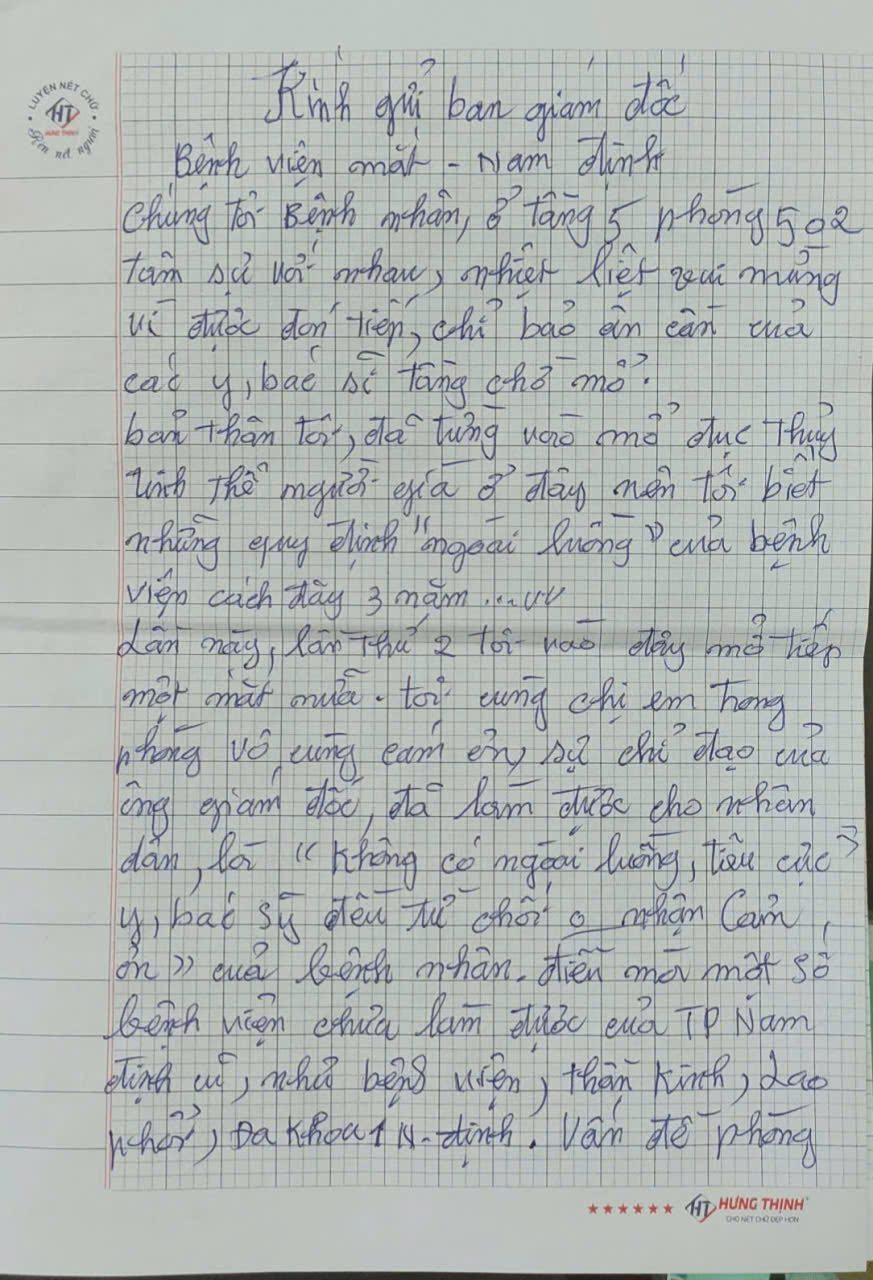 LUYỆN NÉT CHỮ
HT
HƯNG THỊNH
Rèn nết người
Kính gửi ban giám đốc
Bệnh viện mắt - Nam định
Chúng tôi Bệnh nhân, ở tầng 5 phòng 502
tâm sự với nhau, nhiệt liệt vui mừng
vì được đón tiếp, chỉ bảo ân cần của
các y, bác sĩ tầng chờ mổ.
bản thân tôi, đã từng vào mổ đục thủy
tinh thể người già ở đây nên tôi biết
những quy định "ngoài luồng" của bệnh
viện cách đây 3 năm ... vv
Lần này, lần thứ 2 tôi vào đây mổ tiếp
một mắt nữa. tôi cùng chị em trong
phòng vô cùng cám ơn, sự chỉ đạo của
ông giám đốc, đã làm được cho nhân
dân, là "không có ngoài luồng, tiêu cực"
y, bác sỹ đều từ chối o nhận Cảm
ơn" của bệnh nhân. điều mà một số
bệnh viện chưa làm được của TP Nam
định cũ, như bện8 viện, thần kinh, Lao
phổi, Đa khoa 1 N. định. Vấn đề phòng
HT HƯNG THỊNH
CHO NÉT CHỮ ĐẸP HƠN